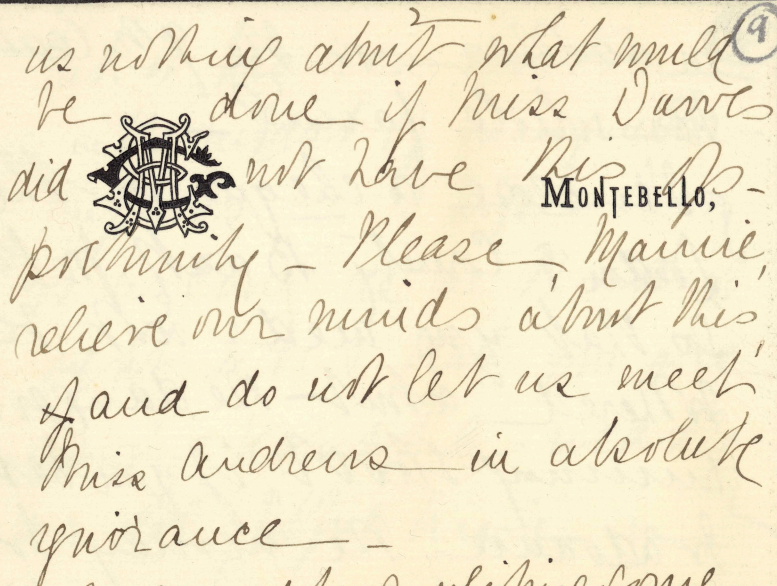 9
us nothing about what would
be done if Miss Dawes
did not have this op-
MONTEBELLO,
portunity – Please, Mamie,
relieve our minds about this,
and do not let us meet
Miss Andrews in absolute
ignorance –